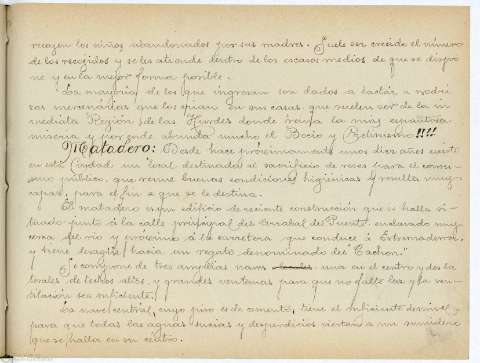 recogen los niños abandonados por sus madres. Suele ser crecido el número
de los recogidos y se les atiende dentro de los escasos medios de que se dispo
ne y en la mejor forma posible.
La mayoría de los que ingresan son dados a lactar a nodri
zas mercenarias que los crian en sus casas que suelen ser de la in
mediata Región de las Hurdes donde reina la mas espantosa
miseria y por ende abunda mucho el Bocio y Cretinismo!!!!
Matadero: Desde hace próximamente unos diez años existe
en esta Ciudad un local destinado al sacrificio de reses para el consu
mo público, que reune buenas condiciones higiénicas y resulta muy
capaz, para el fin a que se le destina.
El matadero es un edificio de reciente construcción que se halla si
tuado junto á la calle principal del Arrabal del Puente enclavado muy
cerca del río y próximo á la carretera que conduce á Extremadura
y tiene desagüe hacia un regato denominado del "Cachon"
Se compone de tres amplias naves una en el centro y dos la
terales de techos altos, y grandes ventanas para que no falte luz y la ven
tilación sea suficiente.
La nave central, cuyo piso es de cemento, tiene el suficiente desnivel
para que todas las aguas sucias y desperdicios viertan a un sumidero
que se halla en su centro.